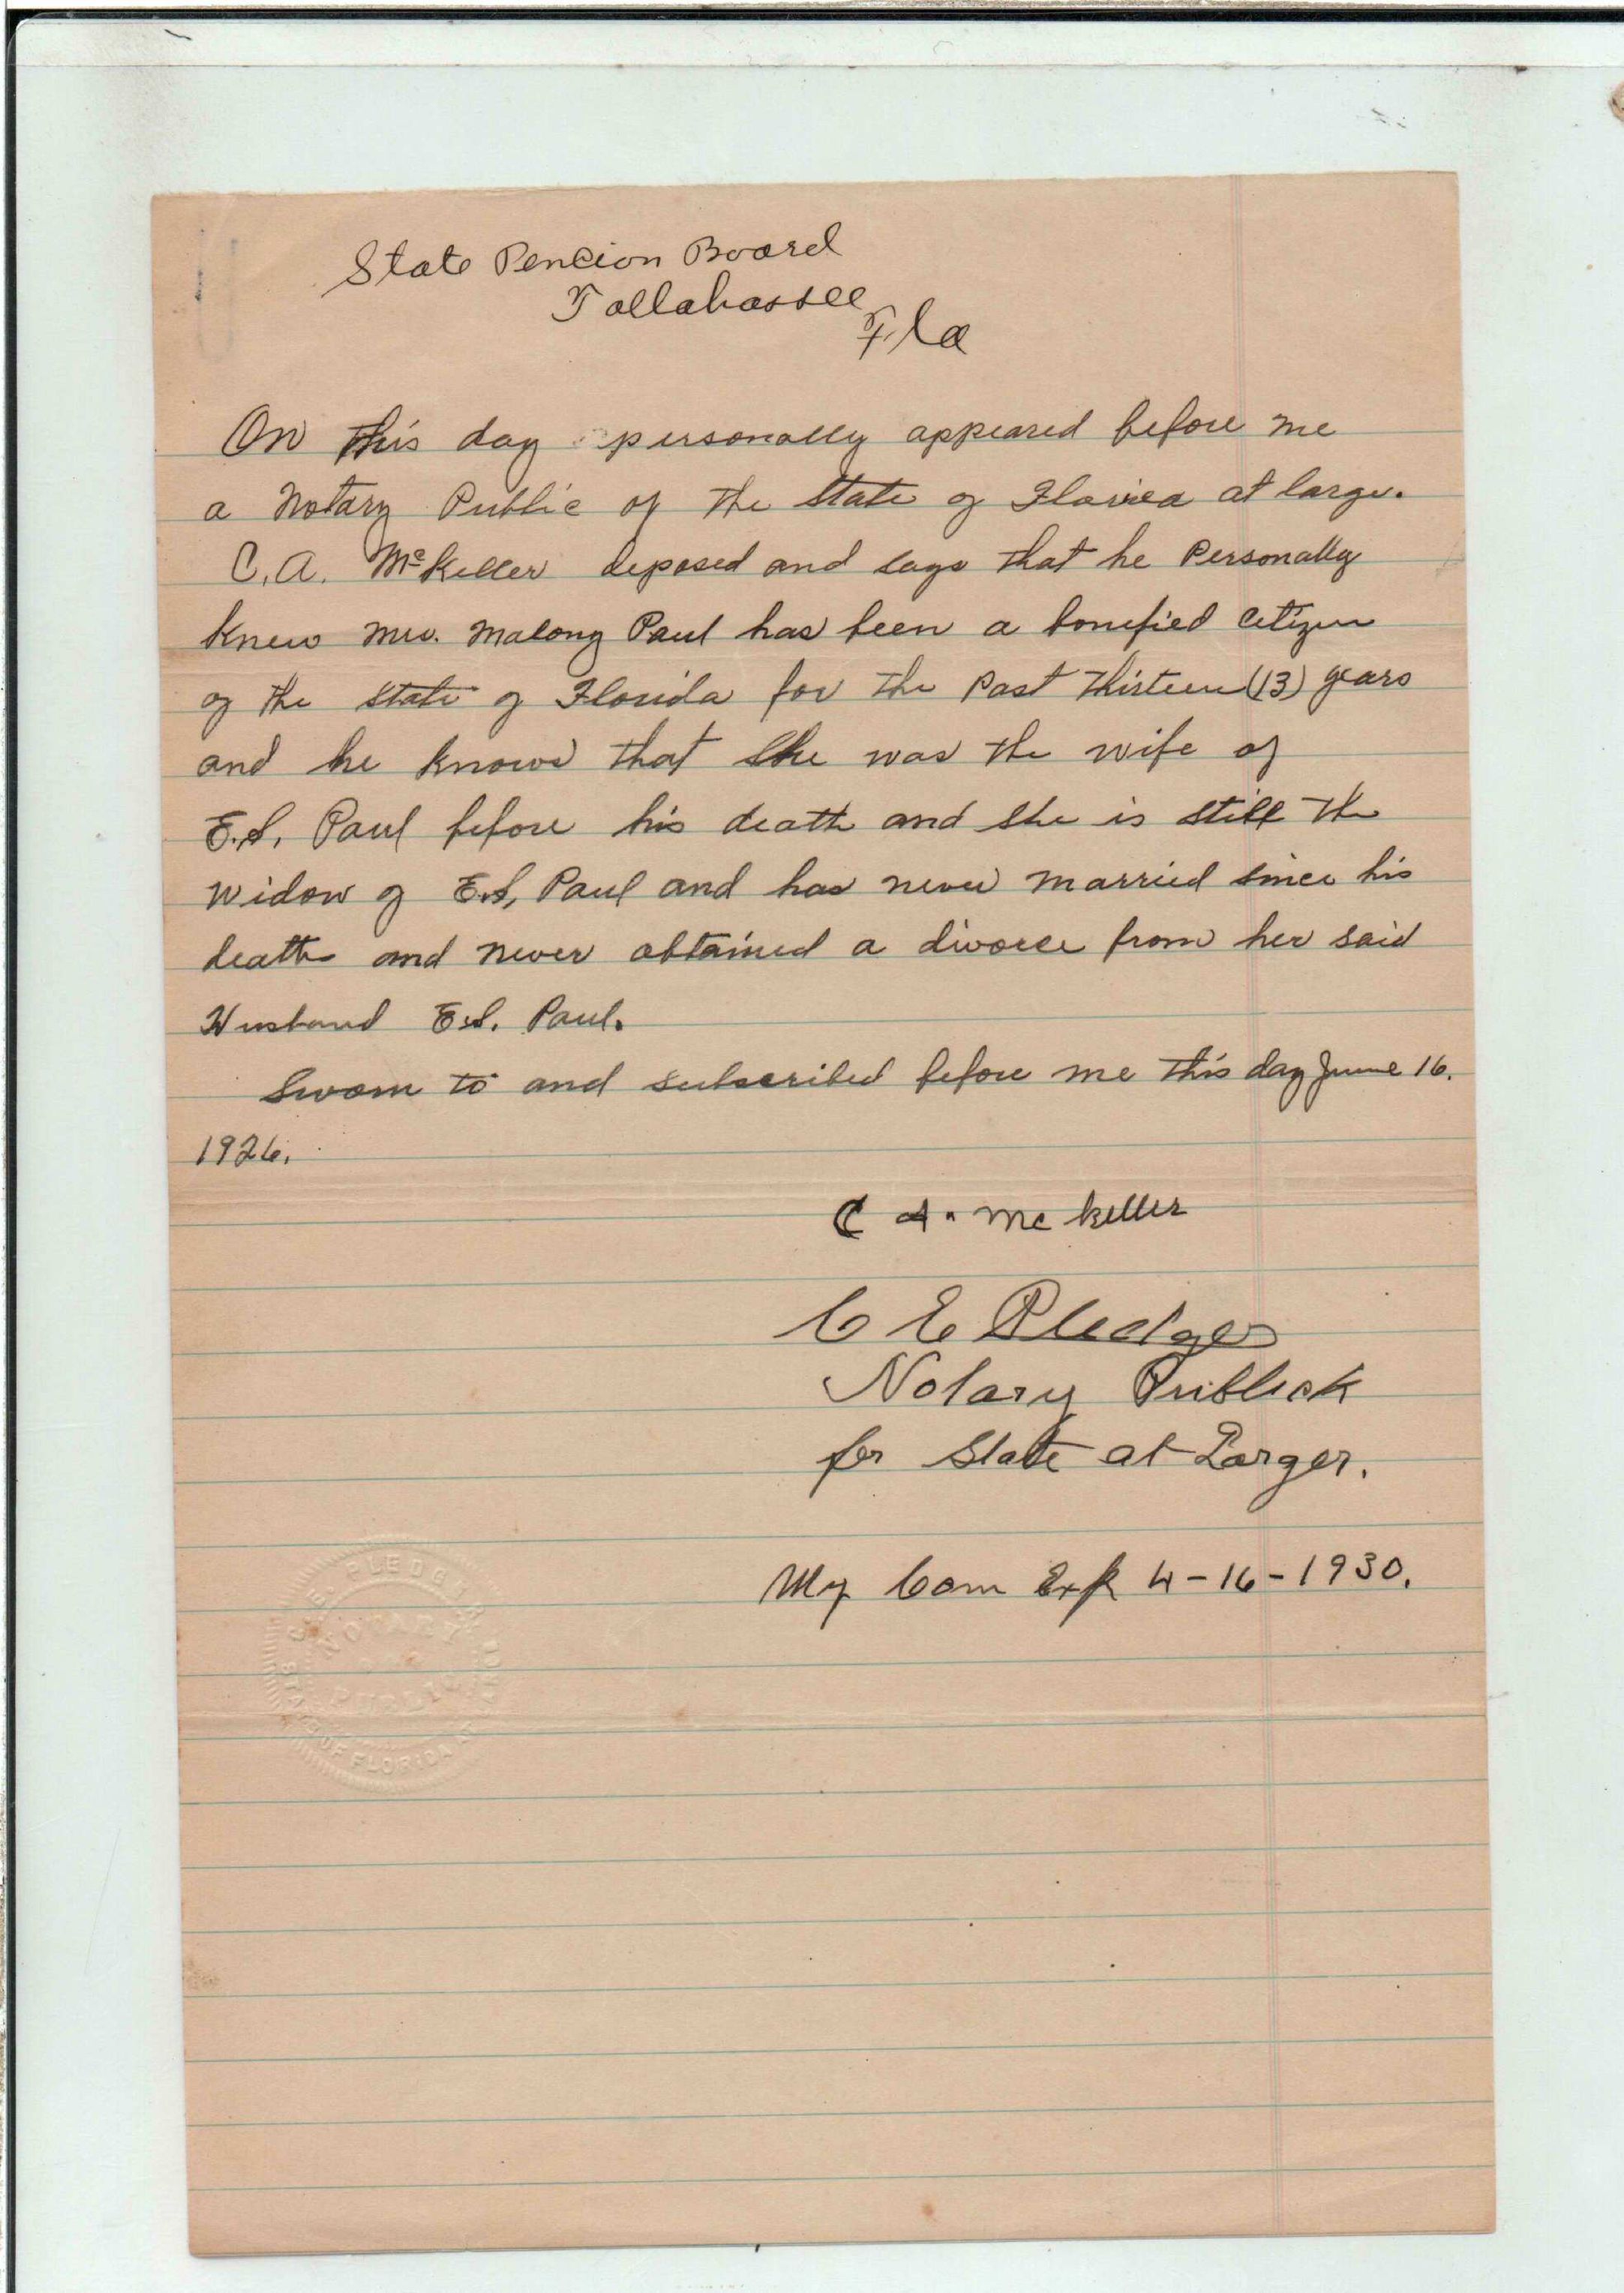 State Pencion Board
Tallahassee
Fla
On this day personally appeared before me
a Notary Public of the State of Florida at large.
C. A. McKeller deposed and says that he Personally
knew Mrs. Malony Paul has been a bonified Citizen
of the State of Florida for the Past thirteen (13) years
and he knows that she was the wife of
E.S. Paul before his death and she is still the
widow of E.S. Paul and has never married since his
death and never obtained a divorce from her said
Husband E.S. Paul.
Sworn to and subscribed before me this day June 16.
1926.
C A. McKeller
C E Pledger
Notary Publick
for State at Larger.
My Com Exp 4-16-1930.
C. E. PLEDGER
NOTARY
PUBLIC
STATE OF FLORIDA